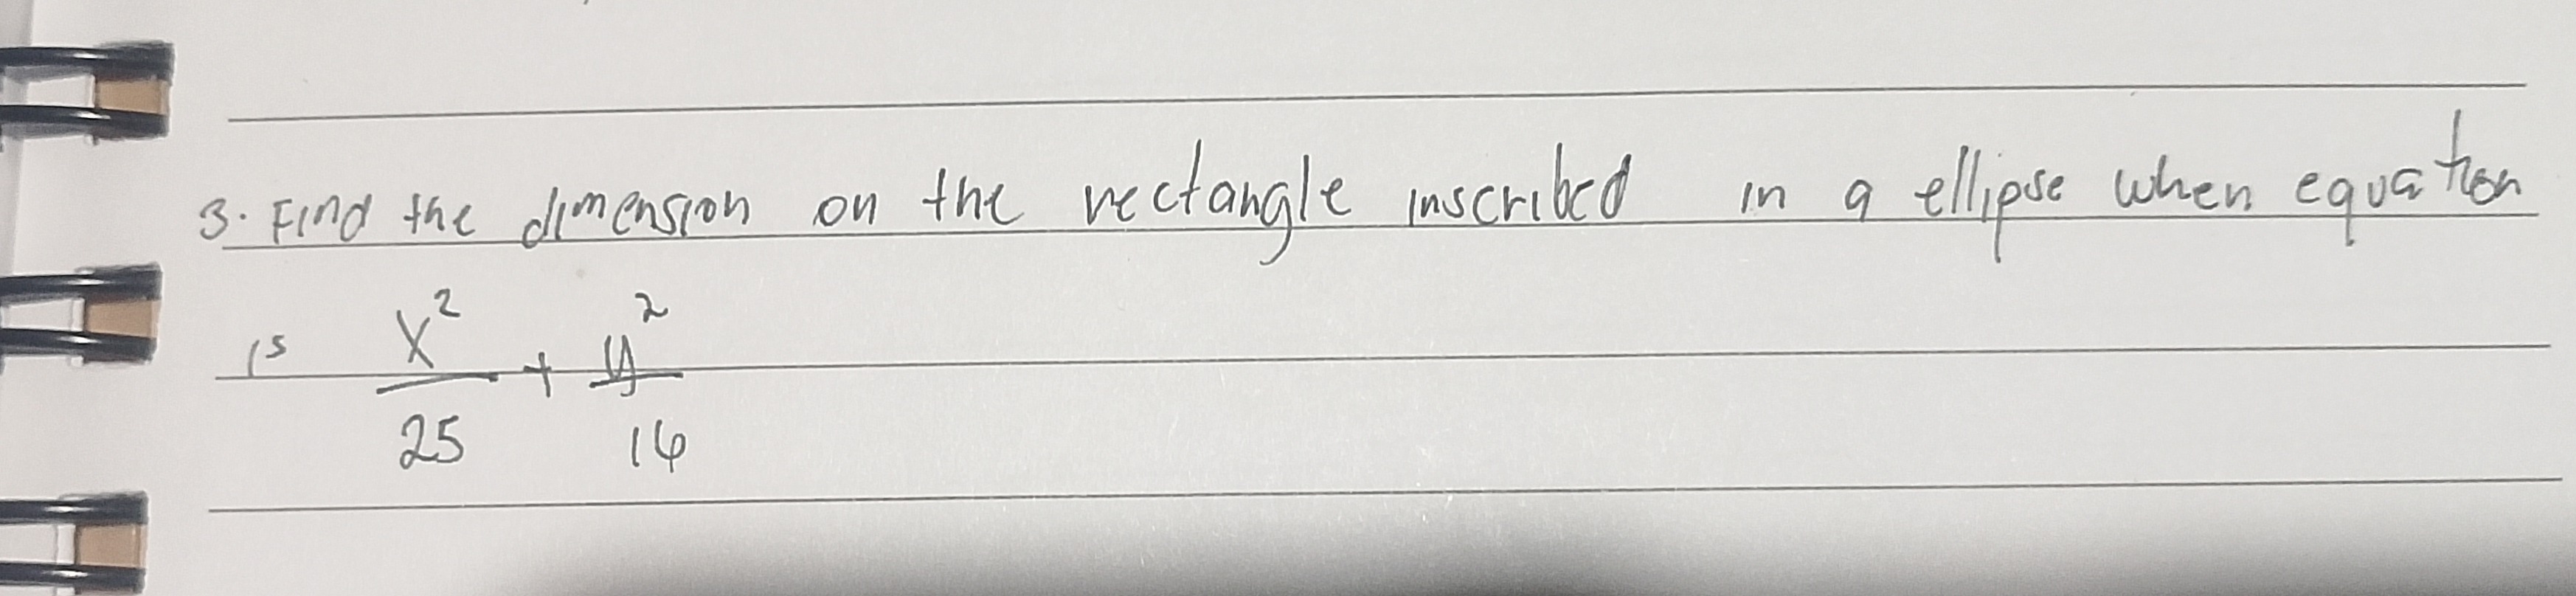 3. Find the dimension on the rectangle inscribed in a ellipse when equation
is x²/25 + y²/16